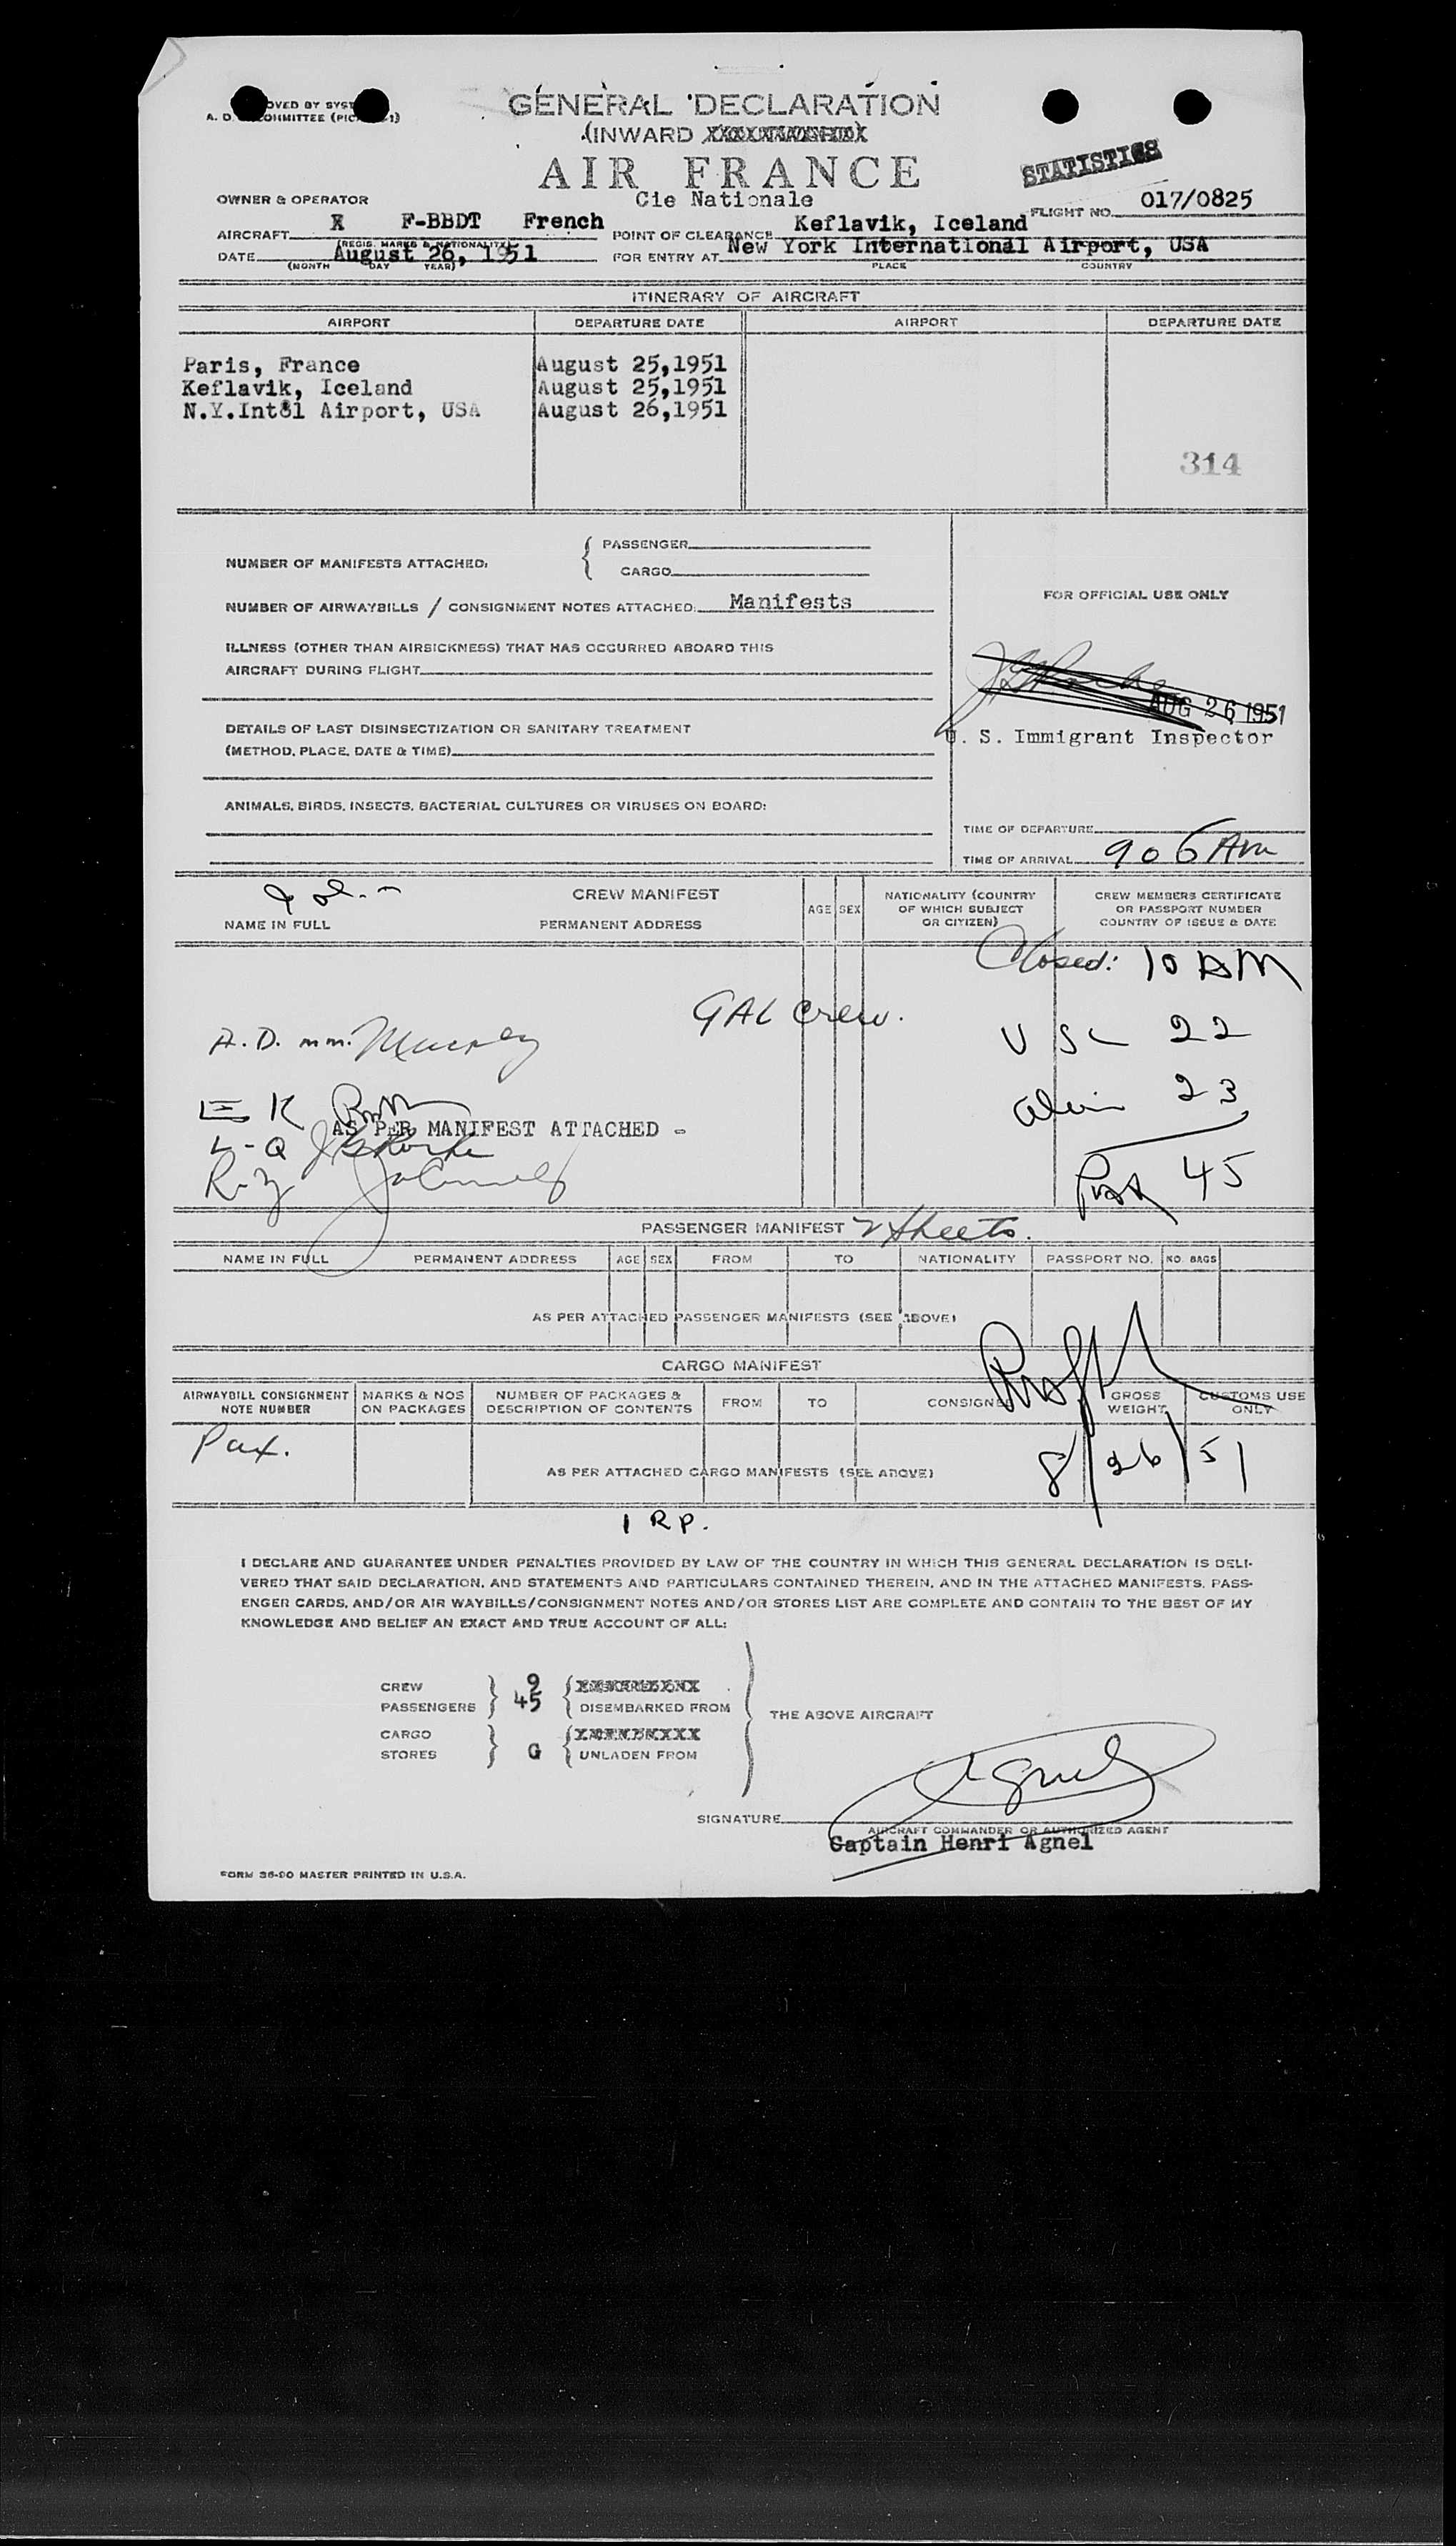 GENERAL DECLARATION
A. D. COMMITTEE
(INWARD
AIR FRANCE
STATISTICS
OWNER & OPERATOR Cie Nationale FLIGHT NO. 017/0825
AIRCRAFT X F-BBDT French POINT OF CLEARANCE Keflavik, Iceland
(REGIS. MARKS & NATIONALITY)
DATE August 26, 1951 FOR ENTRY AT New York International Airport, USA
(MONTH DAY YEAR) PLACE COUNTRY
ITINERARY OF AIRCRAFT
AIRPORT DEPARTURE DATE AIRPORT DEPARTURE DATE
Paris, France August 25,1951
Keflavik, Iceland August 25,1951
N.Y.Int&l Airport, USA August 26,1951
314
NUMBER OF MANIFESTS ATTACHED: { PASSENGER
CARGO
NUMBER OF AIRWAYBILLS / CONSIGNMENT NOTES ATTACHED: Manifests
FOR OFFICIAL USE ONLY
ILLNESS (OTHER THAN AIRSICKNESS) THAT HAS OCCURRED ABOARD THIS
AIRCRAFT DURING FLIGHT
AUG 26 1951
DETAILS OF LAST DISINSECTIZATION OR SANITARY TREATMENT
(METHOD, PLACE, DATE & TIME)
U. S. Immigrant Inspector
ANIMALS, BIRDS, INSECTS, BACTERIAL CULTURES OR VIRUSES ON BOARD:
TIME OF DEPARTURE
TIME OF ARRIVAL 906 Am
CREW MANIFEST
NAME IN FULL PERMANENT ADDRESS AGE SEX NATIONALITY (COUNTRY OF WHICH SUBJECT OR CITIZEN) CREW MEMBERS CERTIFICATE OR PASSPORT NUMBER COUNTRY OF ISSUE & DATE
Closed: 10 AM
GAL Crew.
A.D. mm. USC 22
E K 23
AS PER MANIFEST ATTACHED -
L-Q
R-Z 45
PASSENGER MANIFEST 2 sheets.
NAME IN FULL PERMANENT ADDRESS AGE SEX FROM TO NATIONALITY PASSPORT NO. NO. BAGS
AS PER ATTACHED PASSENGER MANIFESTS (SEE ABOVE)
CARGO MANIFEST
AIRWAYBILL CONSIGNMENT NOTE NUMBER MARKS & NOS ON PACKAGES NUMBER OF PACKAGES & DESCRIPTION OF CONTENTS FROM TO CONSIGNEE GROSS WEIGHT CUSTOMS USE ONLY
Pax.
8/26/51
AS PER ATTACHED CARGO MANIFESTS (SEE ABOVE)
1 R P.
I DECLARE AND GUARANTEE UNDER PENALTIES PROVIDED BY LAW OF THE COUNTRY IN WHICH THIS GENERAL DECLARATION IS DELI-
VERED THAT SAID DECLARATION, AND STATEMENTS AND PARTICULARS CONTAINED THEREIN, AND IN THE ATTACHED MANIFESTS, PASS-
ENGER CARDS, AND/OR AIR WAYBILLS/CONSIGNMENT NOTES AND/OR STORES LIST ARE COMPLETE AND CONTAIN TO THE BEST OF MY
KNOWLEDGE AND BELIEF AN EXACT AND TRUE ACCOUNT OF ALL:
CREW 9
PASSENGERS 45 DISEMBARKED FROM
THE ABOVE AIRCRAFT
CARGO
STORES G UNLADEN FROM
SIGNATURE Agnel
AIRCRAFT COMMANDER OR AUTHORIZED AGENT
Captain Henri Agnel
FORM 36-90 MASTER PRINTED IN U.S.A.